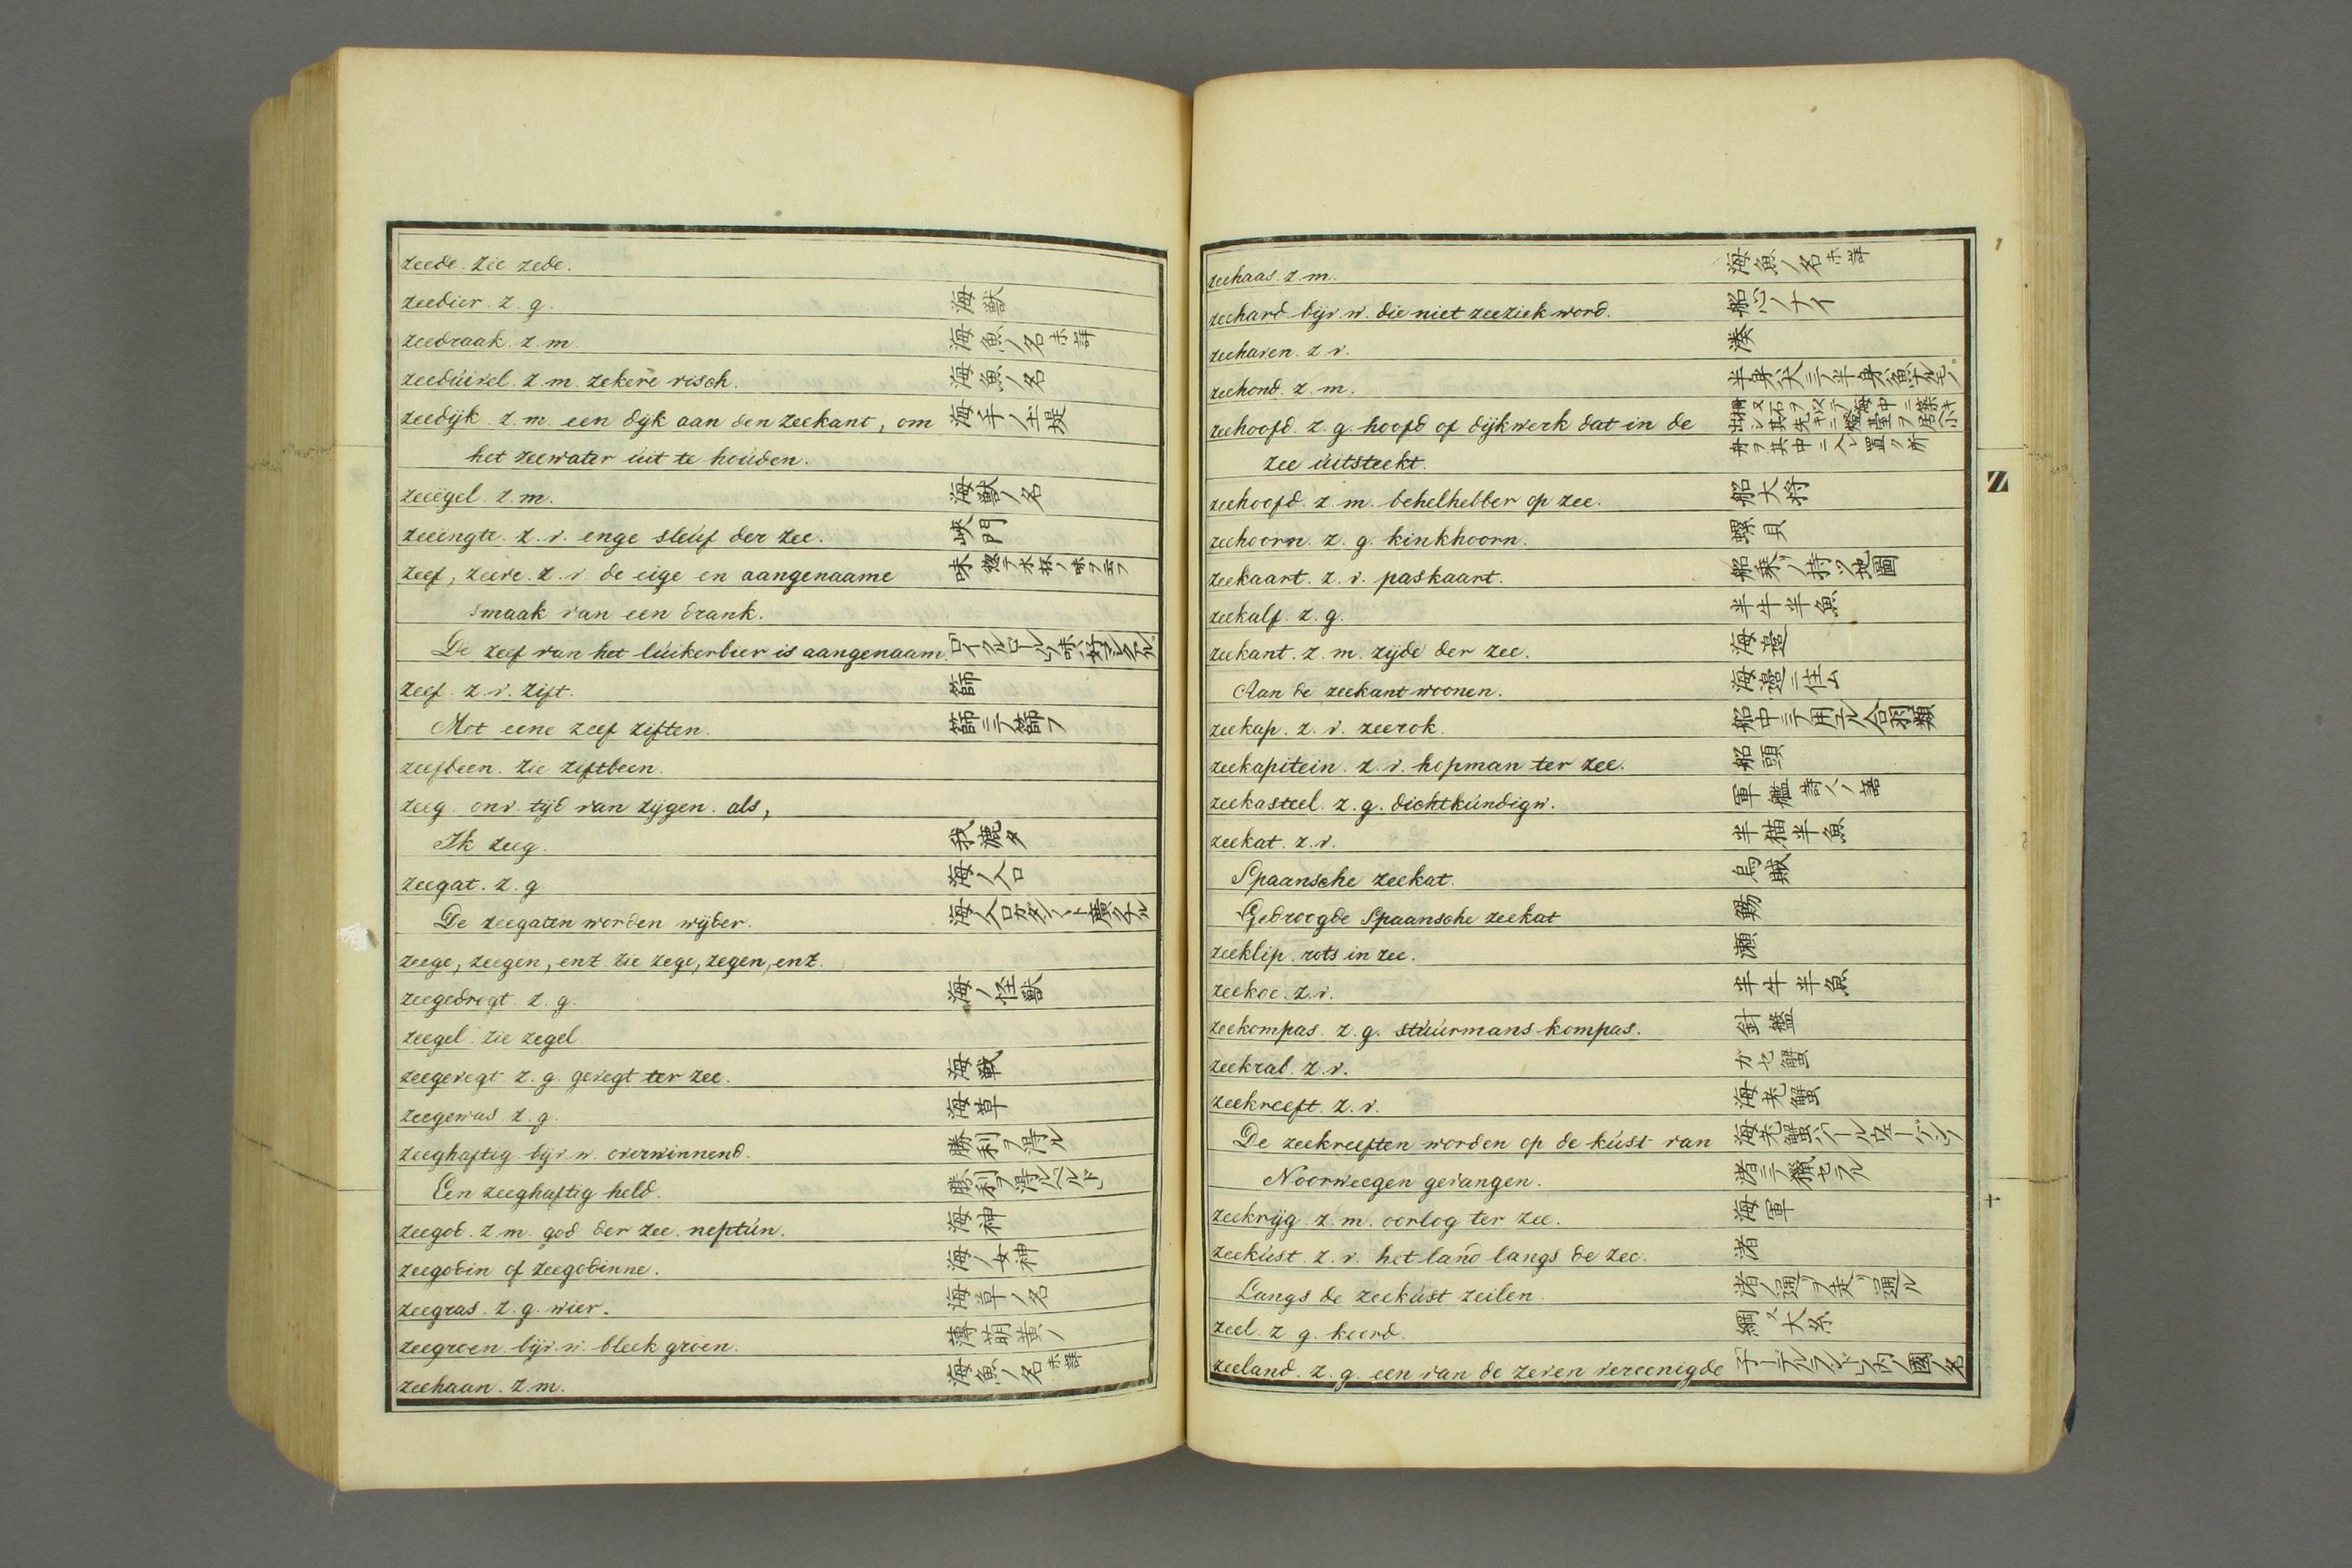 zeede. zie zede.
zeedier. z. g. 海獣
zeedraak. z. m. 海魚ノ名未詳
zeedúivel. z. m. zekere visch. 海魚ノ名
zeedijk. z. m. een dijk aan den zeekant, om 海手ノ土堤
het zeewater úit te hoúden.
zeeëgel. z. m. 海獣ノ名
zeeëngte. z. v. enge sleúf der zee. 峡門
zeef, zeeve. z. v. de eige en aangenaame 味 惣テ水杯ノ味ヲ云フ
smaak van een drank.
De zeef van het lúikerbier is aangenaam.
zeef. z. v. zift. 篩
Met eene zeef ziften. 篩ニテ篩フ
zeefbeen. zie ziftbeen.
zeeg. onv. tijd van zijgen. als,
Ik zeeg. 我漉タ
zeegat. z. g. 海ノ入口
De zeegaten worden wijder. 海ノ入口ガダンダント廣クナル
zeege, zeegen, enz. zie zege, zegen, enz.
zeegedrogt. z. g. 海ノ怪獣
zeegel. zie zegel.
zeegevegt. z. g. gevegt ter zee. 海戦
zeegewas. z. g. 海草
zeeghaftig. bijv. w. overwinnend. 勝利ヲ得ル
Een zeeghaftig held. 勝利ヲ得ルヘルド
zeegod. z. m. god der zee. neptún. 海神
zeegodin of zeegodinne. 海ノ女神
zeegras. z. g. wier. 海草ノ名
zeegroen. bijv. w. bleek groen. 薄萌黄ノ
zeehaan. z. m. 海魚ノ名未詳
zeehaas. z. m. 海魚ノ名未詳
zeehard. bijv. w. die niet zeeziek word. 船心ノナイ
zeehaven. z. v. 湊
zeehond. z. m. 半身ハ犬ニテ半身ハ魚ナルモノ
zeehoofd. z. g. hoofd of dijkwerk dat in de
zee úitsteekt. 舟ヲ其中ニ入レ置ク所
zeehoofd. z. m. behelhebber op zee. 船大将
zeehoorn. z. g. kinkhoorn. 螺貝
zeekaart. z. v. paskaart. 船乗ノ持ツ地圖
zeekalf. z. g. 半牛半魚
zeekant. z. m. zijde der zee. 海邉
Aan de zeekant woonen. 海邉ニ住ム
zeekap. z. v. zeerok. 船中ニテ用ル合羽類
zeekapitein. z. v. hopman ter zee. 船頭
zeekasteel. z. g. dichtkúndigw. 軍艦 詩人ノ語
zeekat. z. v. 半猫半魚
Spaansche zeekat. 烏賊
Gedroogde Spaansche zeekat 鯣
zeeklip. rots in zee. 瀬
zeekoe. z. v. 半牛半魚
zeekompas. z. g. stúúrmans kompas. 針盤
zeekrab. z. v. ガゼ蟹
zeekreeft. z. v. 海老蟹
De zeekreeften worden op de kúst van 海老蟹ハノールウェーゲンノ
Noorweegen gevangen. 渚ニテ獵セラル
zeekrijg. z. m. oorlog ter zee. 海軍
zeekúst. z. v. het land langs de zee. 渚
Langs de zeekúst zeilen. 渚ノ通リヲ走リ通ル
zeel. z. g. koord. 綱又大糸
zeeland. z. g. een van de zeven vereenigde
Z